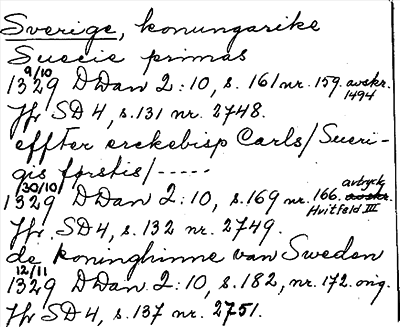 Sverige, konungarike
Suecie primas
9/10
1329 DDan 2:10, s. 161 nr. 159. avskr.
1494
Jfr SD 4, s. 131 nr. 2748.
effter erekebisp Carls/Sueri-
gis førstis/-----
30/10
1329 DDan 2:10, s. 169 nr. 166. avtryck
Huitfeld III
Jfr. SD 4, s. 132 nr. 2749.
de koninghinne van Sweden
12/11
1329 DDan 2:10, s. 182, nr. 172. orig.
Jfr SD 4, s. 137 nr. 2751.